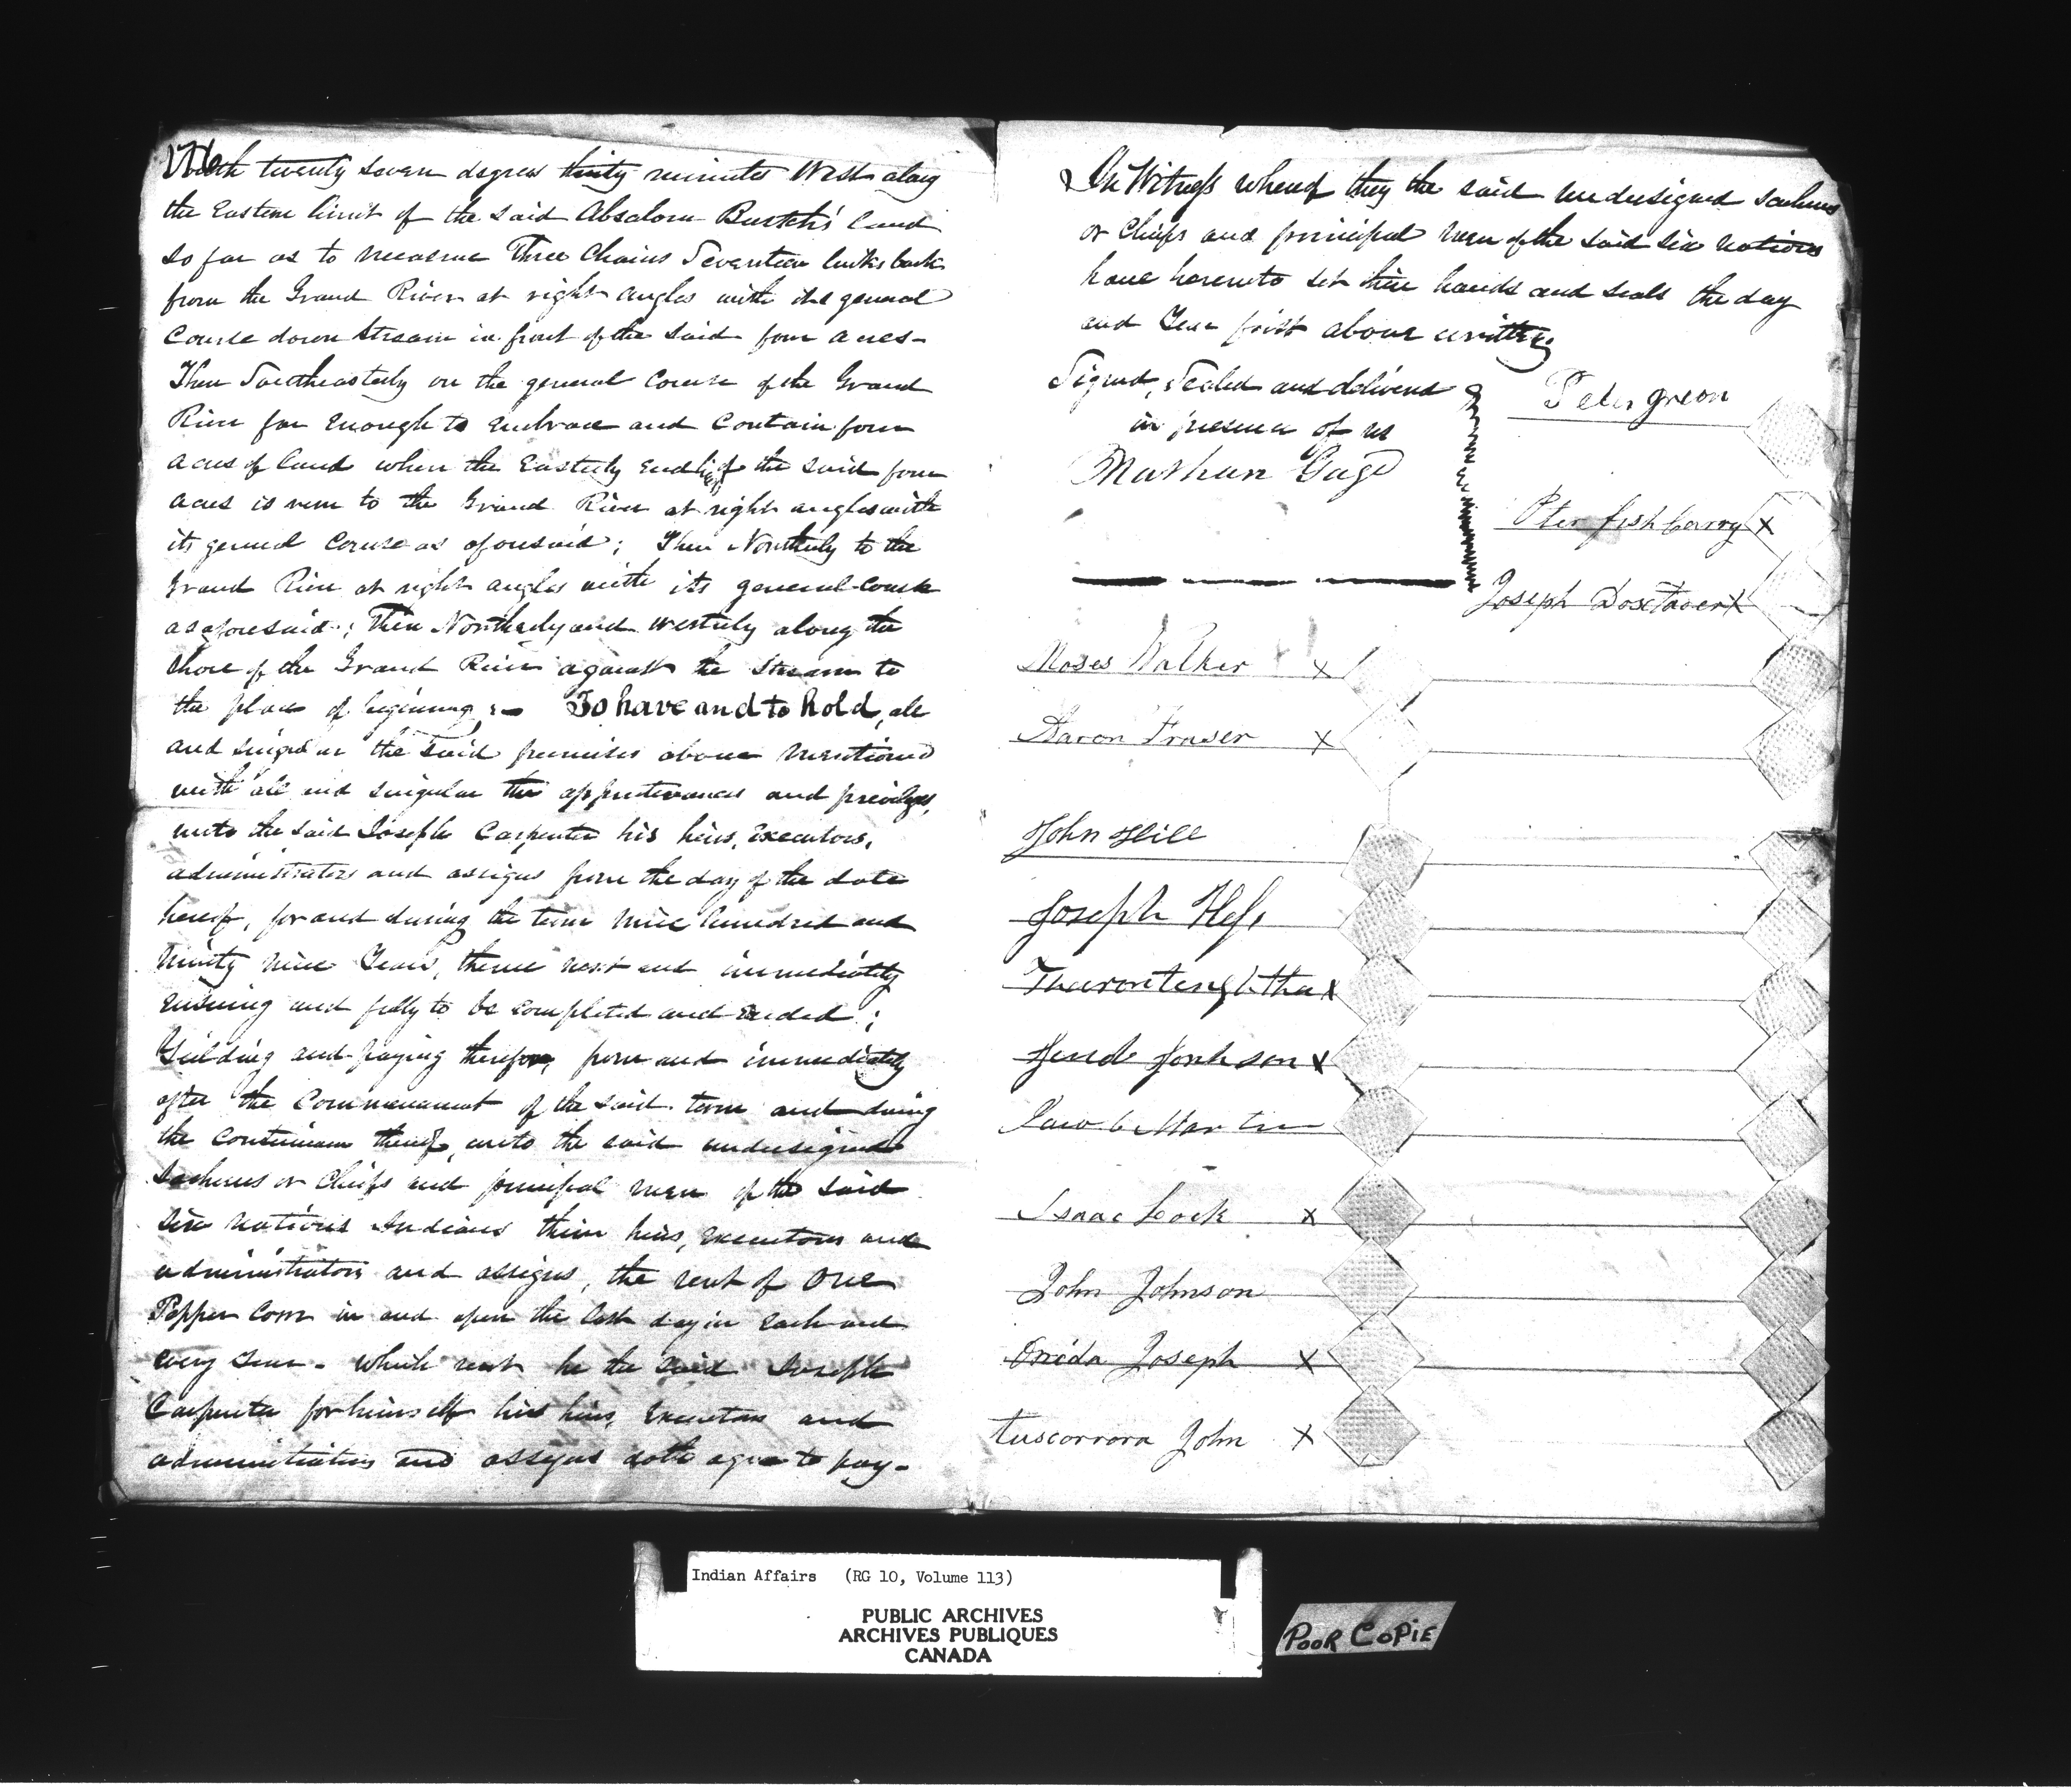 176
North twenty seven degrees thirty minutes West along
the Eastern limit of the said Absalom Burtch's land
so far as to measure Three Chains Seventeen links back
from the Grand River at right angles with its general
Course down stream in front of the said four acres-
Then Southeasterly on the general Course of the Grand
River far Enough to embrace and Contain four
acres of land when the Easterly End of the said four
acres is run to the Grand River at right angles with
its general Course as aforesaid; Then Northerly to the
Grand River at right angles with its general Course
as aforesaid; Then Northerly and westerly along the
shore of the Grand River against the stream to
the place of beginning;- To have and to hold, all
and singular the said premises above mentioned
with all and singular the appurtenances and privileges,
unto the said Joseph Carpenter his heirs, Executors,
administrators and assigns from the day of the date
hereof, for and during the term nine hundred and
ninety nine Years, thence next and immediately
ensuing and fully to be completed and Ended;
Yeilding and paying therefor, from and immediately
after the Commencement of the said term and during
the continuance thereof, unto the said undersigned
Sachems or Chiefs and principal men of the said
Six nations Indians their heirs, Executors and
administrators and assigns, the rent of One
Pepper Corn in and upon the last day in Each and
every Year- which rent he the said Joseph
Carpenter for himself his heirs, Executors and
administrators and assigns doth agree to pay-
In Witness whereof they the said undersigned sachems
or Chiefs and principal men of the said six nations
have hereunto set their hands and seals the day
and Year first above written
Signed, Sealed and delivered
in presence of us
Nathan Gage
Peter green
Peter fish carry X
Joseph X
Moses Walker X
Aaron Fraser X
John Hill
Joseph
X
Johnson X
Jacob Martin
Isaac Lock X
John Johnson
Oneida Joseph X
tuscorrora John X
Indian Affairs (RG 10, Volume 113)
PUBLIC ARCHIVES
ARCHIVES PUBLIQUES
CANADA
POOR COPIE